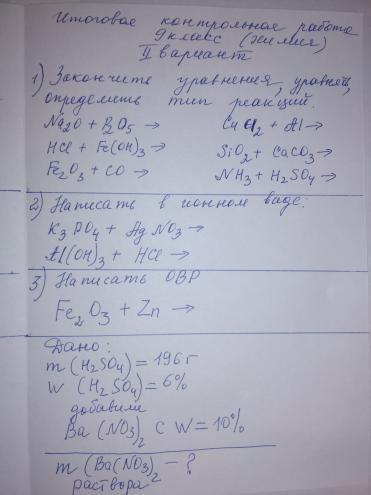 Итоговая контрольная работа
9 класс (химия)
II вариант
1) Закончите уравнения, уравнять,
определить тип реакций.
Na2O + P2O5 → CuCl2 + Al →
HCl + Fe(OH)3 → SiO2 + CaCO3 →
Fe2O3 + CO → NH3 + H2SO4 →
2) Написать в ионном виде:
K3PO4 + AgNO3 →
Al(OH)3 + HCl →
3) Написать ОВР
Fe2O3 + Zn →
Дано:
m (H2SO4) = 196 г
W (H2SO4) = 6%
добавили
Ba(NO3)2 с W = 10%
m (Ba(NO3)2 - ?
раствора